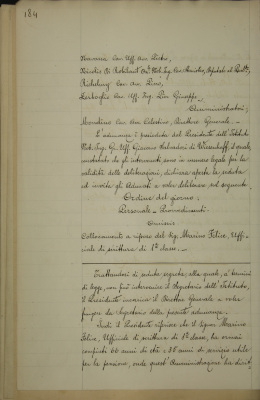 184
Cav. Uff. Avv.
Cav. Avv.
Cav. Uff. Ing. Giuseppe,
Amministratori,
Cav. Avv. Celestino, Direttore Generale.
L'adunanza è presieduta dal Presidente dell'Istituto
Nob. Ing. Gr. Uff. Giacomo di il quale,
constatato che gli intervenuti sono in numero legale per la
validità delle deliberazioni, dichiara aperta la seduta
ed invita gli Adunati a voler deliberare sul seguente
Ordine del giorno:
Personale - Provvedimenti
Omissis
Collocamento a riposo del Sig. Marino Felice, Uffi-
ciale di scrittura di 1ª classe.
Trattandosi di seduta segreta, alla quale, a termini
di legge, non può intervenire il Segretario dell'Istituto,
il Presidente il Direttore Generale a voler
fungere da Segretario della presente adunanza.
Indi il Presidente riferisce che il Signor Marino
Felice, Ufficiale di scrittura di 1ª classe, ha ormai
compiuto 66 anni di età e 38 anni di servizio utile
per la pensione, onde quest'Amministrazione ha dirit-